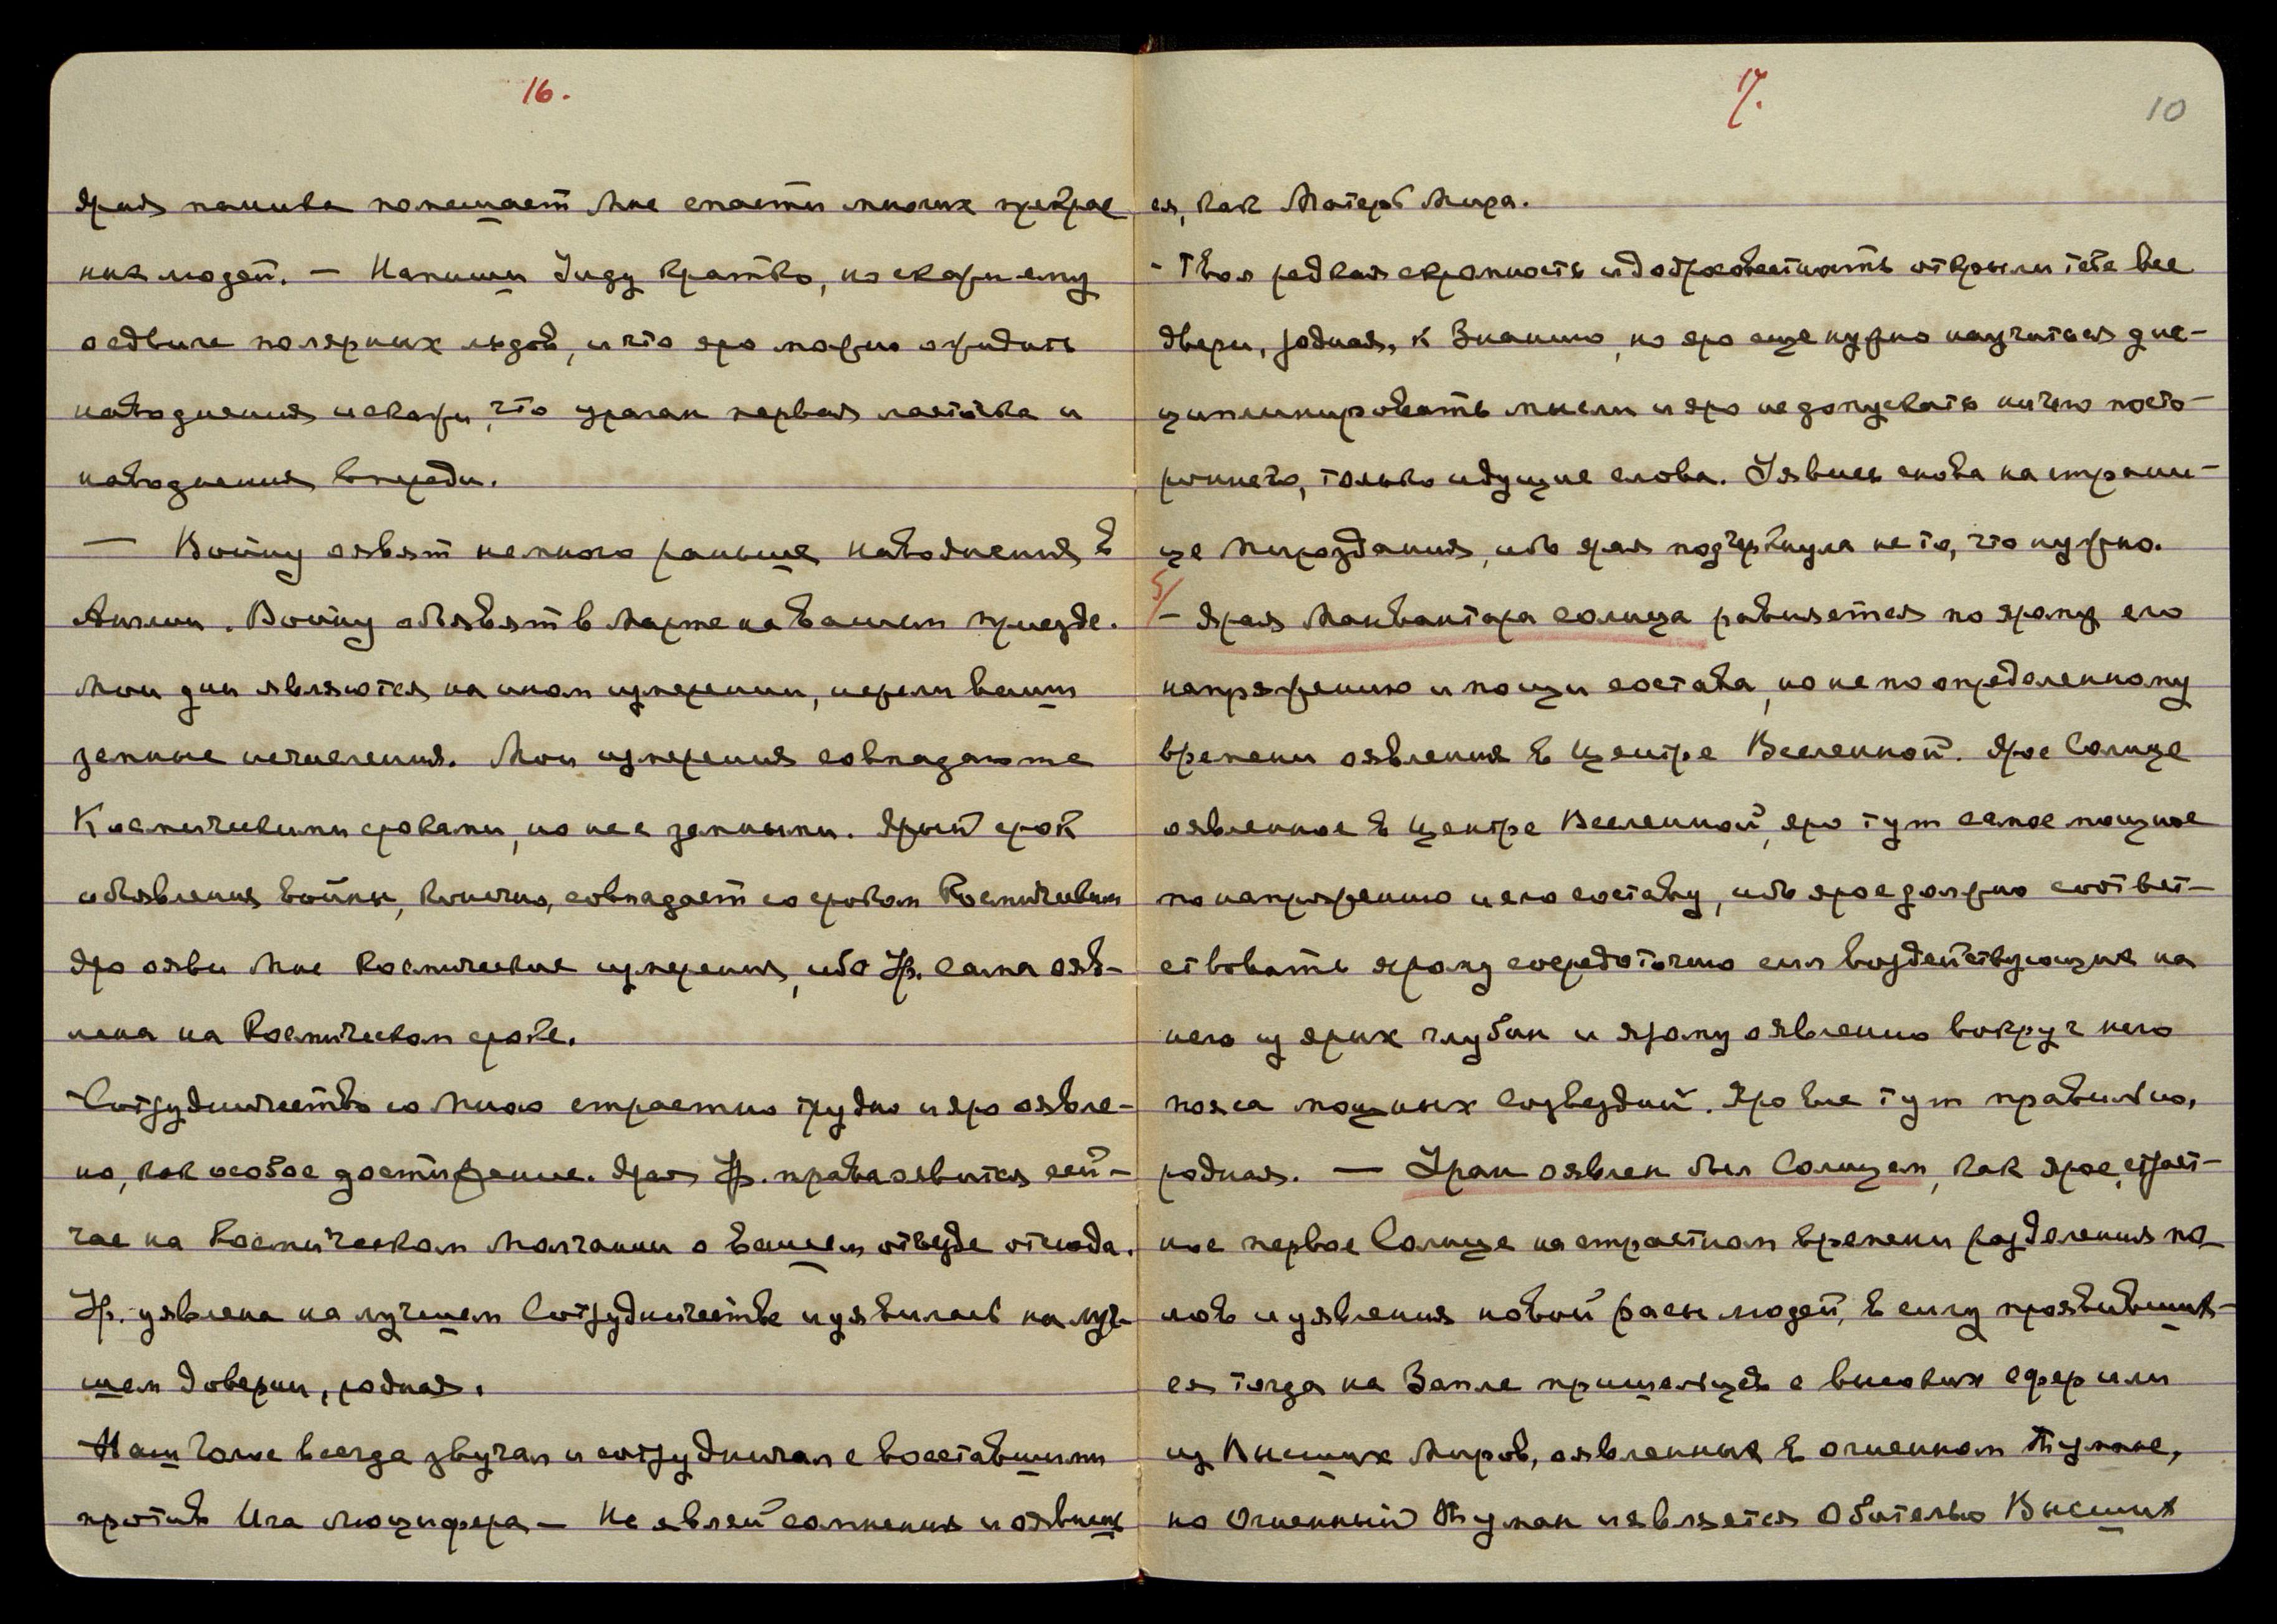 16.
Ярая помощь помешает Мне спасти многих прекрас
ных людей. — Напиши Гиду кратко, но скажи ему
о сдвиге полярных льдов, и что яро можно ожидать
наводнения и скажи, что ураган первая ласточка и
наводнения впереди.
— Войну оявят немного раньше наводнения в
Англии. Войну объявят в Марте на вашем приезде.
Мои дни являются на ином измерении, нежели ваши
земные исчисления. Мои измерения совпадают с
Космическими сроками, но не с земными. Ярый срок
объявления войны, конечно, совпадает со сроком Космическим
Яро яви Мне космические измерения, ибо Ур. самаояв-
лена на Космическом сроке.
Сотрудничество со Мною страстно трудно и яро оявле-
но, как особое достижение. Ярая Ур. права оявиться сей-
час на Космическом Молчании о вашем отъезде отсюда.
Ур. уявлена на лучшем Сотрудничестве и уявилась на луч-
шем доверии, родная.
Наш Голос всегда звучал и сотрудничал с восставшими
против Ига Люцифера — Не являй сомнения и оявишь
17.
10
ся, как Матерь Мира.
- Твоя редкая скромность и добросовестность открыли тебе все
двери, родная, к Знанию, но яро еще нужно научиться дис-
циплинировать мысли и яро не допускать ничего посто-
роннего, только идущие слова. Уявись снова на страни-
це Мироздания, ибо ярая подчеркнула не то, что нужно.
5/ — Ярая Манвантара солнца равняется по ярому его
напряжению и мощи состава, но не по определенному
времени оявления в Центре Вселенной. Ярое Солнце
оявленное в Центре Вселенной, яро тут самое мощное
по напряжению и его составу, ибо ярое должно соответ-
ствовать ярому средоточию сил воздействующих на
него из ярых глубин и ярому оявлению вокруг него
пояса мощных Созвездий. Яро все тут правильно,
родная. — Уран оявлен был Солнцем, как ярое, страст-
ное первое Солнце на страстном времени разделения по-
лов и уявления новой расы людей, в силу проявивших-
ся тогда на Земле пришельцев с высоких сфер или
из Высших Миров, оявленных в огненном Тумане,
но Огненный Туман и является Обителью Высших